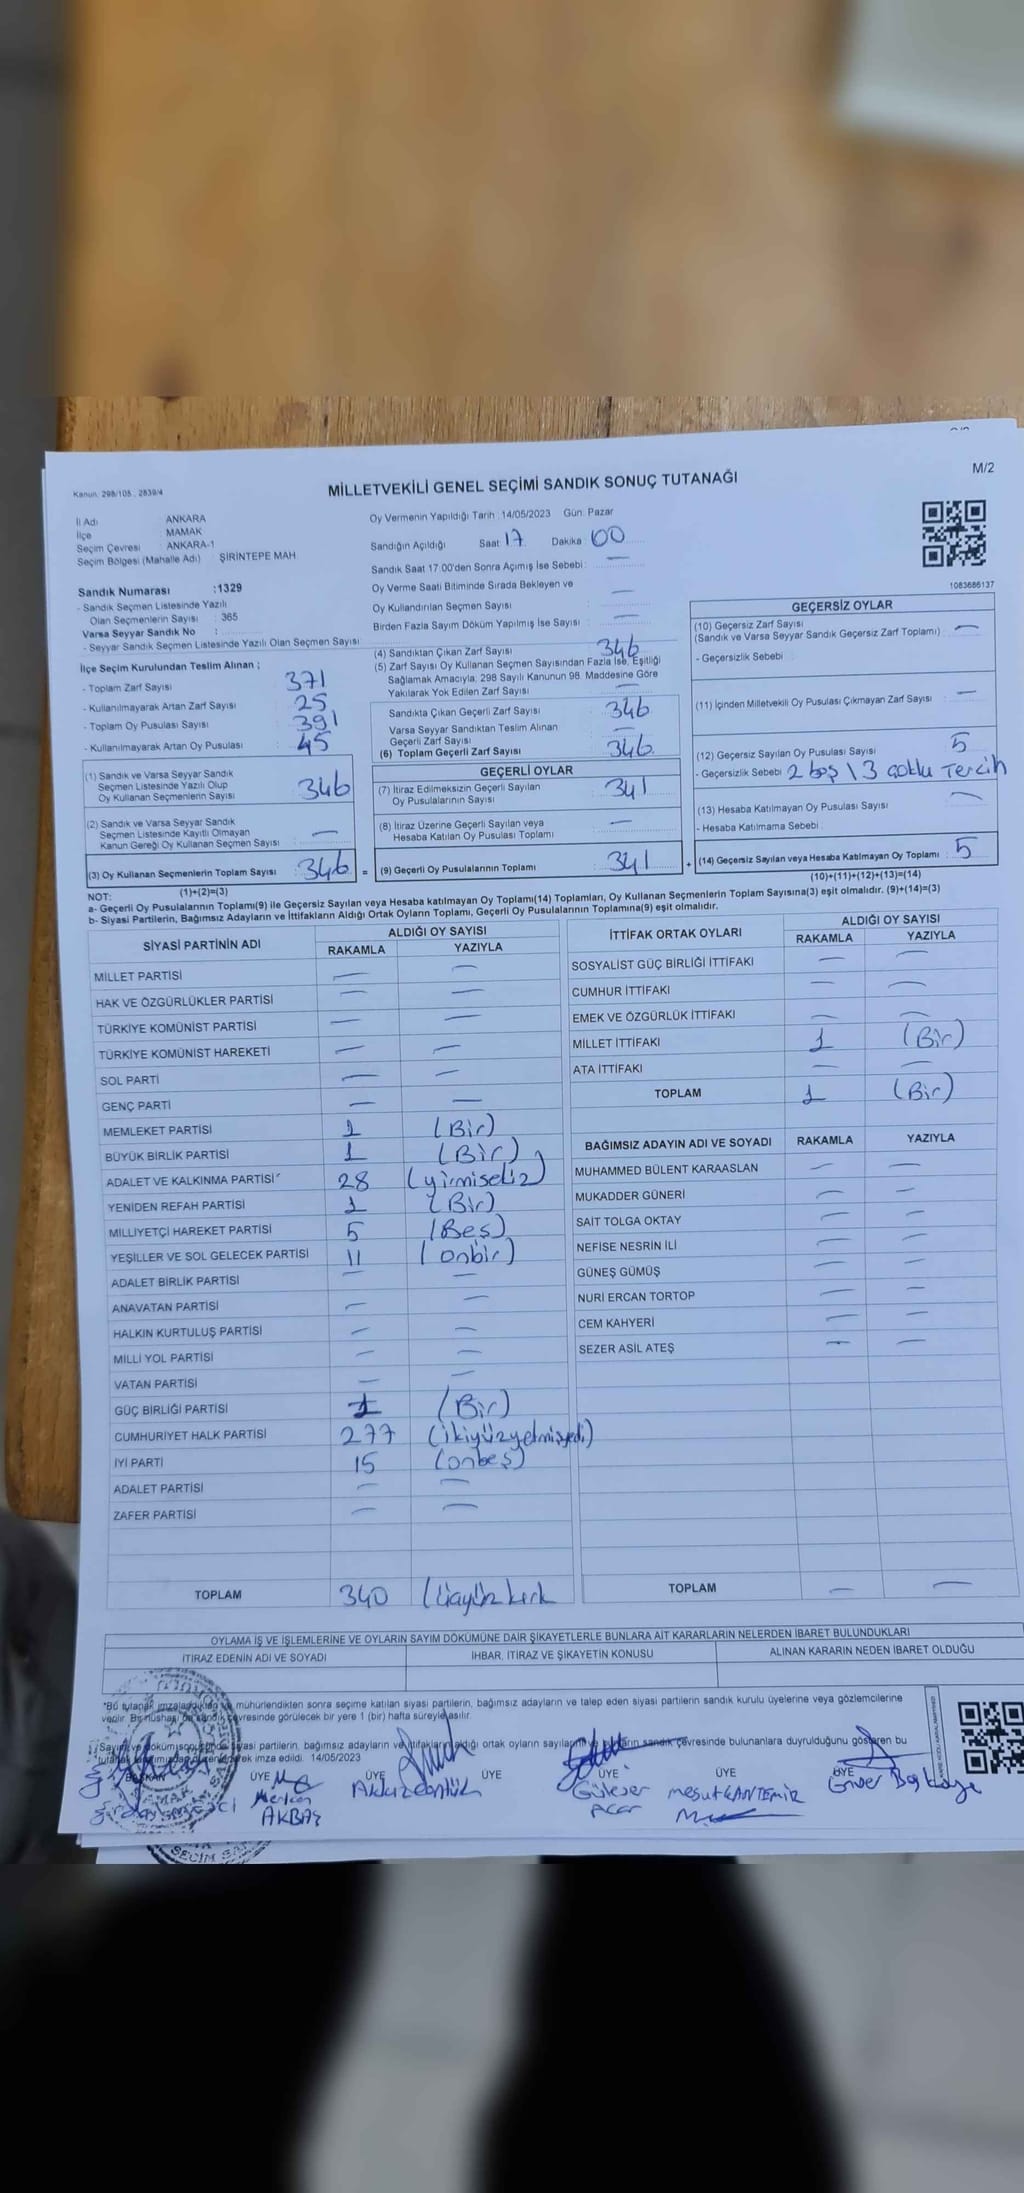 M/2
Kanun: 298/105 , 2839/4
MİLLETVEKİLİ GENEL SEÇİMİ SANDIK SONUÇ TUTANAĞI
İl Adı : ANKARA
İlçe : MAMAK
Seçim Çevresi : ANKARA-1
Seçim Bölgesi (Mahalle Adı) : ŞİRİNTEPE MAH
Oy Vermenin Yapıldığı Tarih : 14/05/2023 Gün: Pazar
Sandığın Açıldığı Saat: 17 Dakika : 00
Sandık Saat 17:00'den Sonra Açımış İse Sebebi : —
Oy Verme Saati Bitiminde Sırada Bekleyen ve
Oy Kullandırılan Seçmen Sayısı : —
Birden Fazla Sayım Döküm Yapılmış İse Sayısı : —
1083686137
Sandık Numarası :1329
- Sandık Seçmen Listesinde Yazılı
Olan Seçmenlerin Sayısı : 365
Varsa Seyyar Sandık No :
- Seyyar Sandık Seçmen Listesinde Yazılı Olan Seçmen Sayısı :
İlçe Seçim Kurulundan Teslim Alınan ;
- Toplam Zarf Sayısı : 371
- Kullanılmayarak Artan Zarf Sayısı : 25
- Toplam Oy Pusulası Sayısı : 391
- Kullanılmayarak Artan Oy Pusulası : 45
(1) Sandık ve Varsa Seyyar Sandık
Seçmen Listesinde Yazılı Olup
Oy Kullanan Seçmenlerin Sayısı : 346
(2) Sandık ve Varsa Seyyar Sandık
Seçmen Listesinde Kayıtlı Olmayan
Kanun Gereği Oy Kullanan Seçmen Sayısı : —
(3) Oy Kullanan Seçmenlerin Toplam Sayısı : 346 =
(1)+(2)=(3)
(4) Sandıktan Çıkan Zarf Sayısı : 346
(5) Zarf Sayısı Oy Kullanan Seçmen Sayısından Fazla İse, Eşitliği
Sağlamak Amacıyla, 298 Sayılı Kanunun 98. Maddesine Göre
Yakılarak Yok Edilen Zarf Sayısı : —
Sandıkta Çıkan Geçerli Zarf Sayısı : 346
Varsa Seyyar Sandıktan Teslim Alınan
Geçerli Zarf Sayısı : —
(6) Toplam Geçerli Zarf Sayısı : 346
GEÇERLİ OYLAR
(7) İtiraz Edilmeksizin Geçerli Sayılan
Oy Pusulalarının Sayısı : 341
(8) İtiraz Üzerine Geçerli Sayılan veya
Hesaba Katılan Oy Pusulası Toplamı : —
(9) Geçerli Oy Pusulalarının Toplamı : 341 +
GEÇERSİZ OYLAR
(10) Geçersiz Zarf Sayısı
(Sandık ve Varsa Seyyar Sandık Geçersiz Zarf Toplamı) : —
- Geçersizlik Sebebi :
(11) İçinden Milletvekili Oy Pusulası Çıkmayan Zarf Sayısı : —
(12) Geçersiz Sayılan Oy Pusulası Sayısı : 5
- Geçersizlik Sebebi : 2 boş \ 3 çoklu Tercih
(13) Hesaba Katılmayan Oy Pusulası Sayısı : —
- Hesaba Katılmama Sebebi :
(14) Geçersiz Sayılan veya Hesaba Katılmayan Oy Toplamı : 5
(10)+(11)+(12)+(13)=(14)
NOT:
a- Geçerli Oy Pusulalarının Toplamı(9) ile Geçersiz Sayılan veya Hesaba katılmayan Oy Toplamı(14) Toplamları, Oy Kullanan Seçmenlerin Toplam Sayısına(3) eşit olmalıdır. (9)+(14)=(3)
b- Siyasi Partilerin, Bağımsız Adayların ve İttifakların Aldığı Ortak Oyların Toplamı, Geçerli Oy Pusulalarının Toplamına(9) eşit olmalıdır.
SİYASİ PARTİNİN ADI ALDIĞI OY SAYISI
RAKAMLA YAZIYLA
MİLLET PARTİSİ — —
HAK VE ÖZGÜRLÜKLER PARTİSİ — —
TÜRKİYE KOMÜNİST PARTİSİ — —
TÜRKİYE KOMÜNİST HAREKETİ — —
SOL PARTİ — —
GENÇ PARTİ — —
MEMLEKET PARTİSİ 1 (Bir)
BÜYÜK BİRLİK PARTİSİ 1 (Bir)
ADALET VE KALKINMA PARTİSİ 28 (yirmisekiz)
YENİDEN REFAH PARTİSİ 1 (Bir)
MİLLİYETÇİ HAREKET PARTİSİ 5 (Beş)
YEŞİLLER VE SOL GELECEK PARTİSİ 11 (onbir)
ADALET BİRLİK PARTİSİ — —
ANAVATAN PARTİSİ — —
HALKIN KURTULUŞ PARTİSİ — —
MİLLİ YOL PARTİSİ — —
VATAN PARTİSİ — —
GÜÇ BİRLİĞİ PARTİSİ 1 (Bir)
CUMHURİYET HALK PARTİSİ 277 (ikiyüzyetmişyedi)
İYİ PARTİ 15 (onbeş)
ADALET PARTİSİ — —
ZAFER PARTİSİ — —
TOPLAM 340 (üçyüz kırk
İTTİFAK ORTAK OYLARI ALDIĞI OY SAYISI
RAKAMLA YAZIYLA
SOSYALİST GÜÇ BİRLİĞİ İTTİFAKI — —
CUMHUR İTTİFAKI — —
EMEK VE ÖZGÜRLÜK İTTİFAKI — —
MİLLET İTTİFAKI 1 (Bir)
ATA İTTİFAKI — —
TOPLAM 1 (Bir)
BAĞIMSIZ ADAYIN ADI VE SOYADI RAKAMLA YAZIYLA
MUHAMMED BÜLENT KARAASLAN — —
MUKADDER GÜNERİ — —
SAİT TOLGA OKTAY — —
NEFİSE NESRİN İLİ — —
GÜNEŞ GÜMÜŞ — —
NURİ ERCAN TORTOP — —
CEM KAHYERİ — —
SEZER ASİL ATEŞ — —
TOPLAM — —
OYLAMA İŞ VE İŞLEMLERİNE VE OYLARIN SAYIM DÖKÜMÜNE DAİR ŞİKAYETLERLE BUNLARA AİT KARARLARIN NELERDEN İBARET BULUNDUKLARI
İTİRAZ EDENİN ADI VE SOYADI İHBAR, İTİRAZ VE ŞİKAYETİN KONUSU ALINAN KARARIN NEDEN İBARET OLDUĞU
*Bu tutanak imzalandıktan ve mühürlendikten sonra seçime katılan siyasi partilerin, bağımsız adayların ve talep eden siyasi partilerin sandık kurulu üyelerine veya gözlemcilerine
verilir. Bir nüshası da sandık çevresinde görülecek bir yere 1 (bir) hafta süreyle asılır.
siyasi partilerin, bağımsız adayların ve ittifakların aldığı ortak oyların sandık çevresinde bulunanlara duyrulduğunu gösteren bu
imza edildi. 14/05/2023
BAŞKAN ÜYE ÜYE ÜYE ÜYE ÜYE ÜYE
AKBAŞ
Gülser Acar
mesut KANTEMİR
Enver